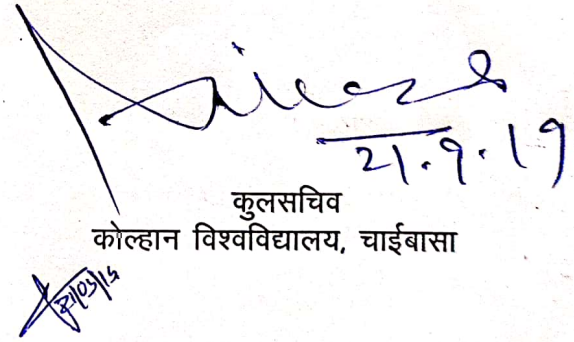 21.9.19
कुलसचिव
कोल्हान विश्वविद्यालय, चाईबासा